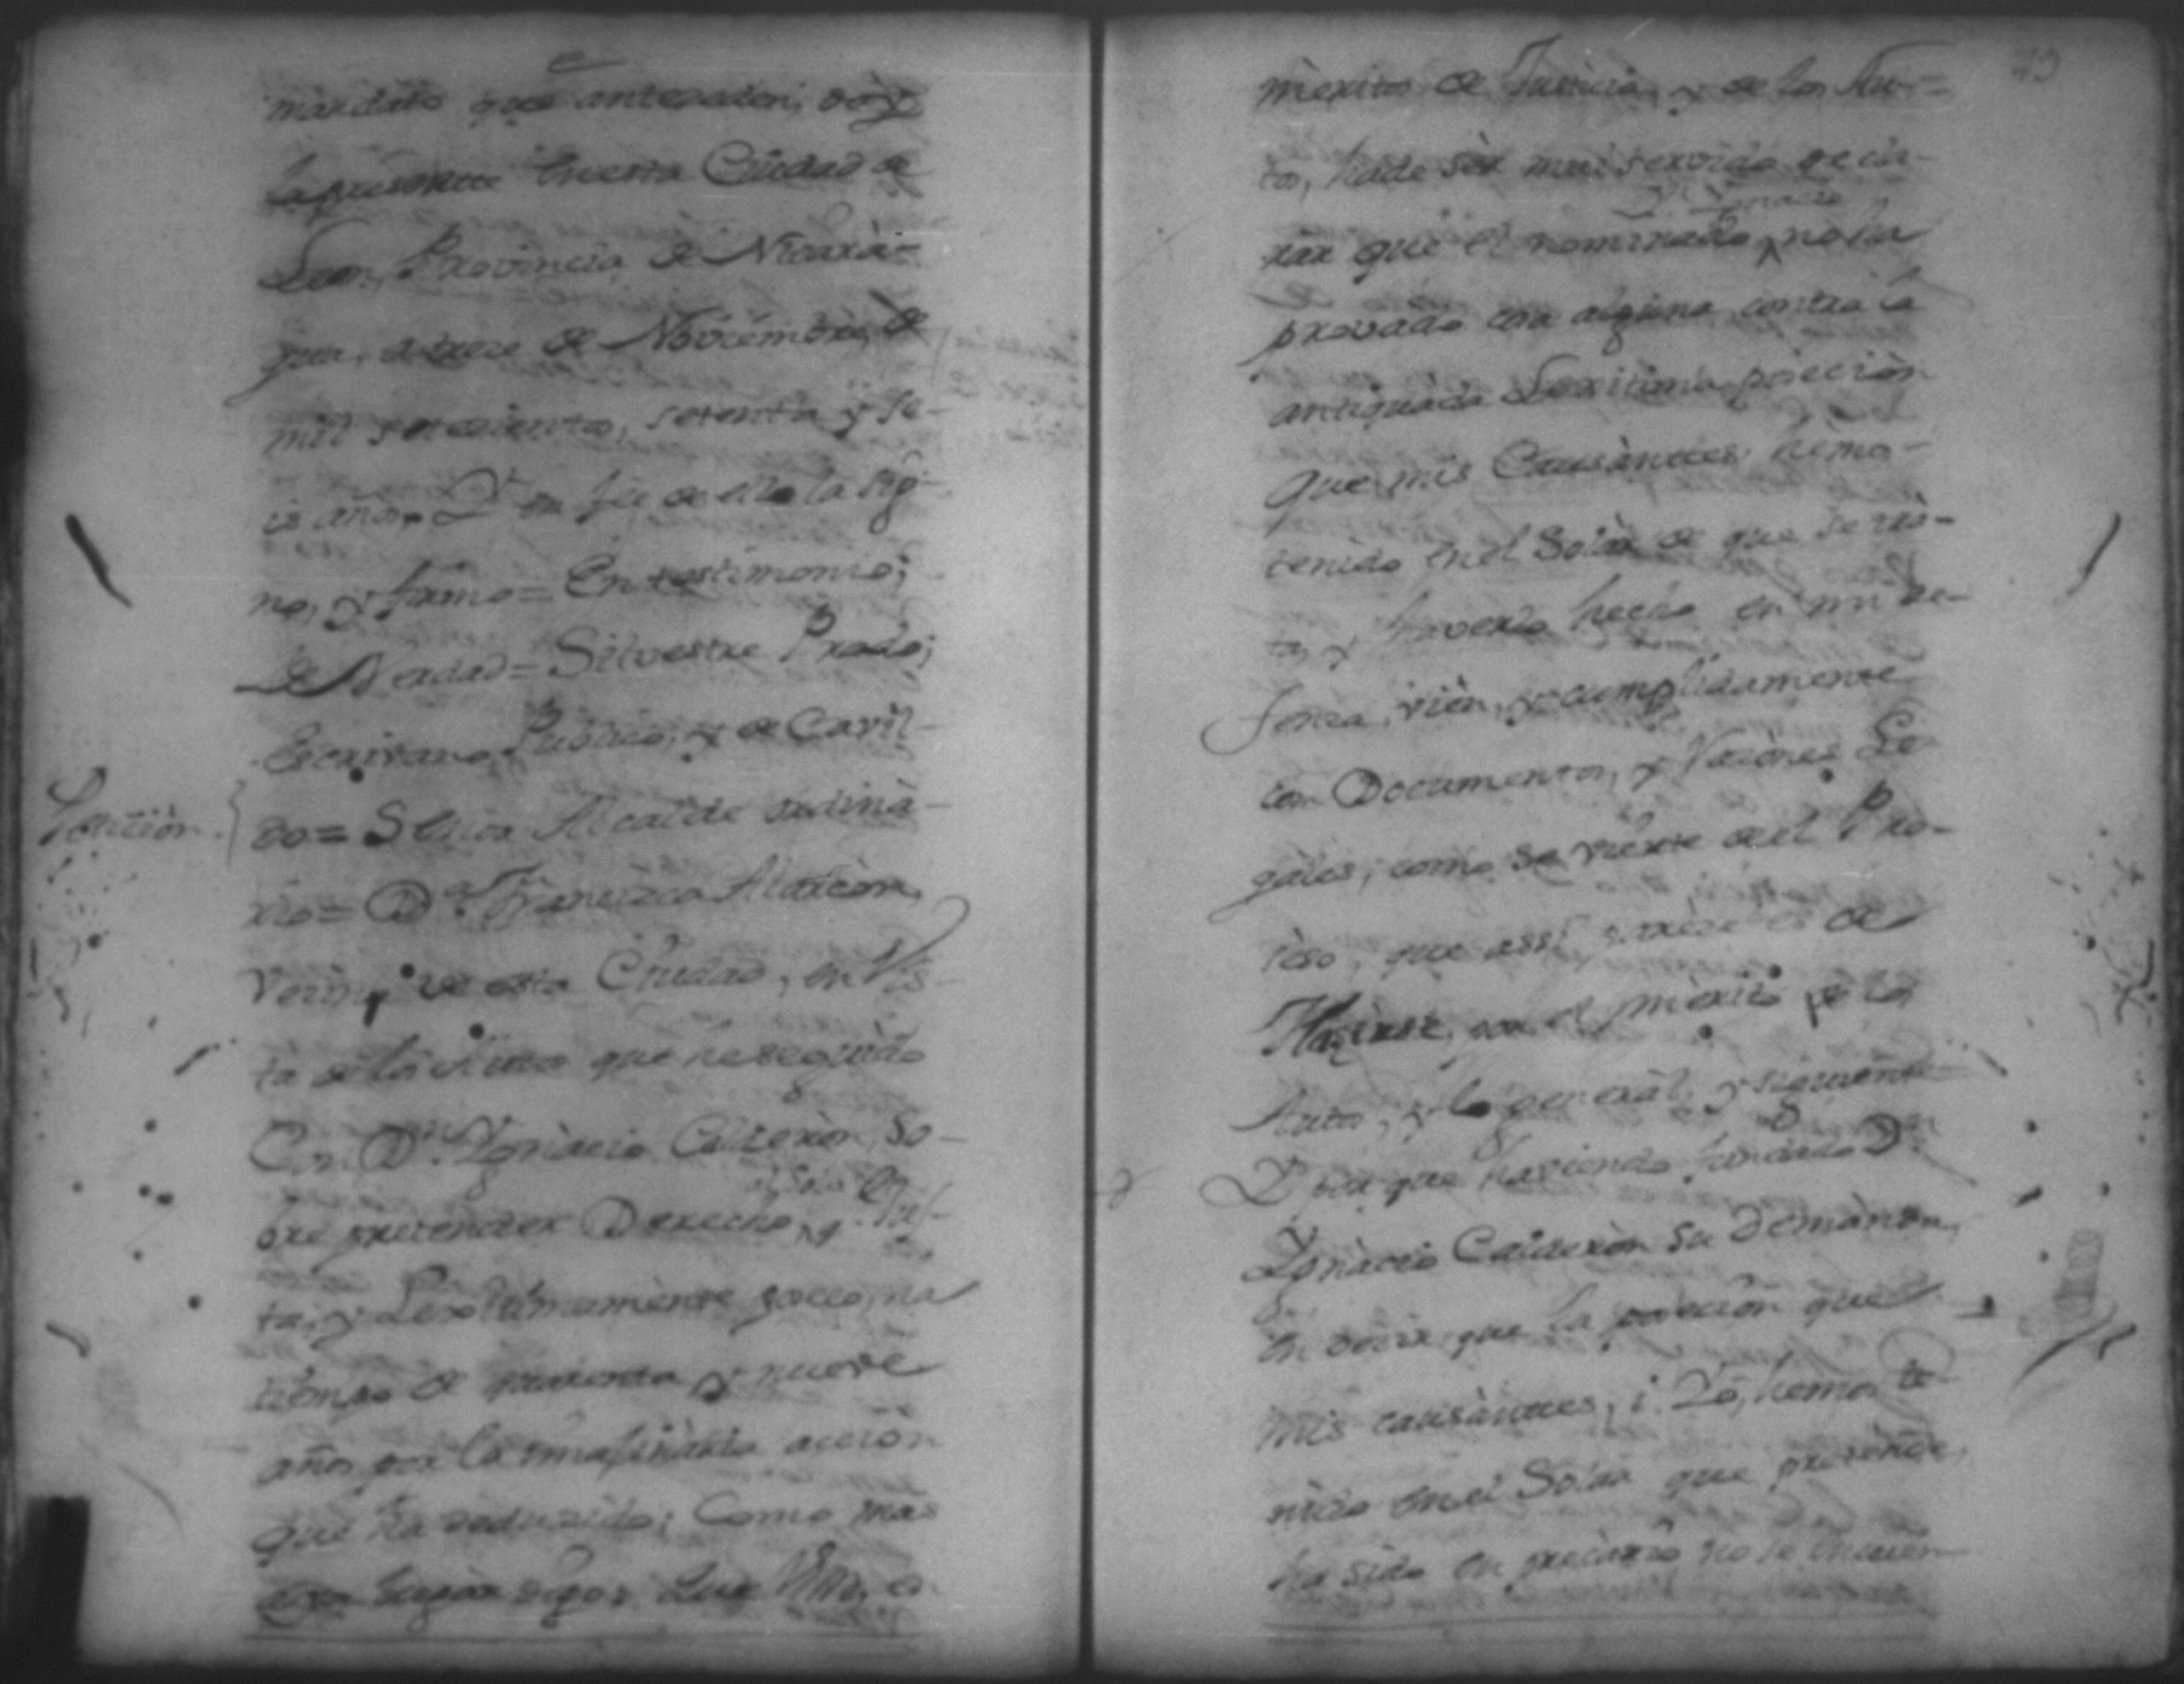 mandato que anteceden, doy
la presente en esta Ciudad de
Leon, Provincia de Nicara-
gua, a trece de Noviembre, de
mil setecientos, setenta y se-
is años. Y en fee de ello la sig-
no, y firmo = En testimonio;
de Verdad = Silvestre Prado;
Escrivano Publico, y de Cavil-
do = Señor Alcalde ordina-
Petición.
rio = Dª. Francisca Alarcon
Vecina de esta Ciudad, en Vis-
ta de los Autos que he seguido
Con Dn. Ygnacio Calderòn, so-
bre pretender Derecho, q. Jus-
ta, y Lexitimamente poseo, ha
tiempo de quarenta y nueve
años por la imaginaria accion
que ha deduzido; Como mas
haya lugar digo: que Vm, en
43
mèritos de Justicia, y de los Au-
tos, hade sèr mui servido decla-
Ygnacio
rar que el nominado, no ha
provado cosa alguna contra la
antiquada Lexitima poseciòn
que mis Causàntes hèmos
tenido en el Solar de que se tra-
ta, y haverlo hecho en mi de-
fensa, vièn, y cumplidamente
con Documentos, y Razònes Le-
gales, como se vierte del Pro-
ceso, que assi es de
Hazerse, por el mèrito de los
Autos, y lo generàl, y siguiente =
Y por que haviendo fundado Dn.
Ygnàcio Calderòn su Demànda,
en decir que la poseciòn que
mis causàntes, i Yo, hemos te-
nido en el Solar que pretènde,
ha sido en precario no se encuen-